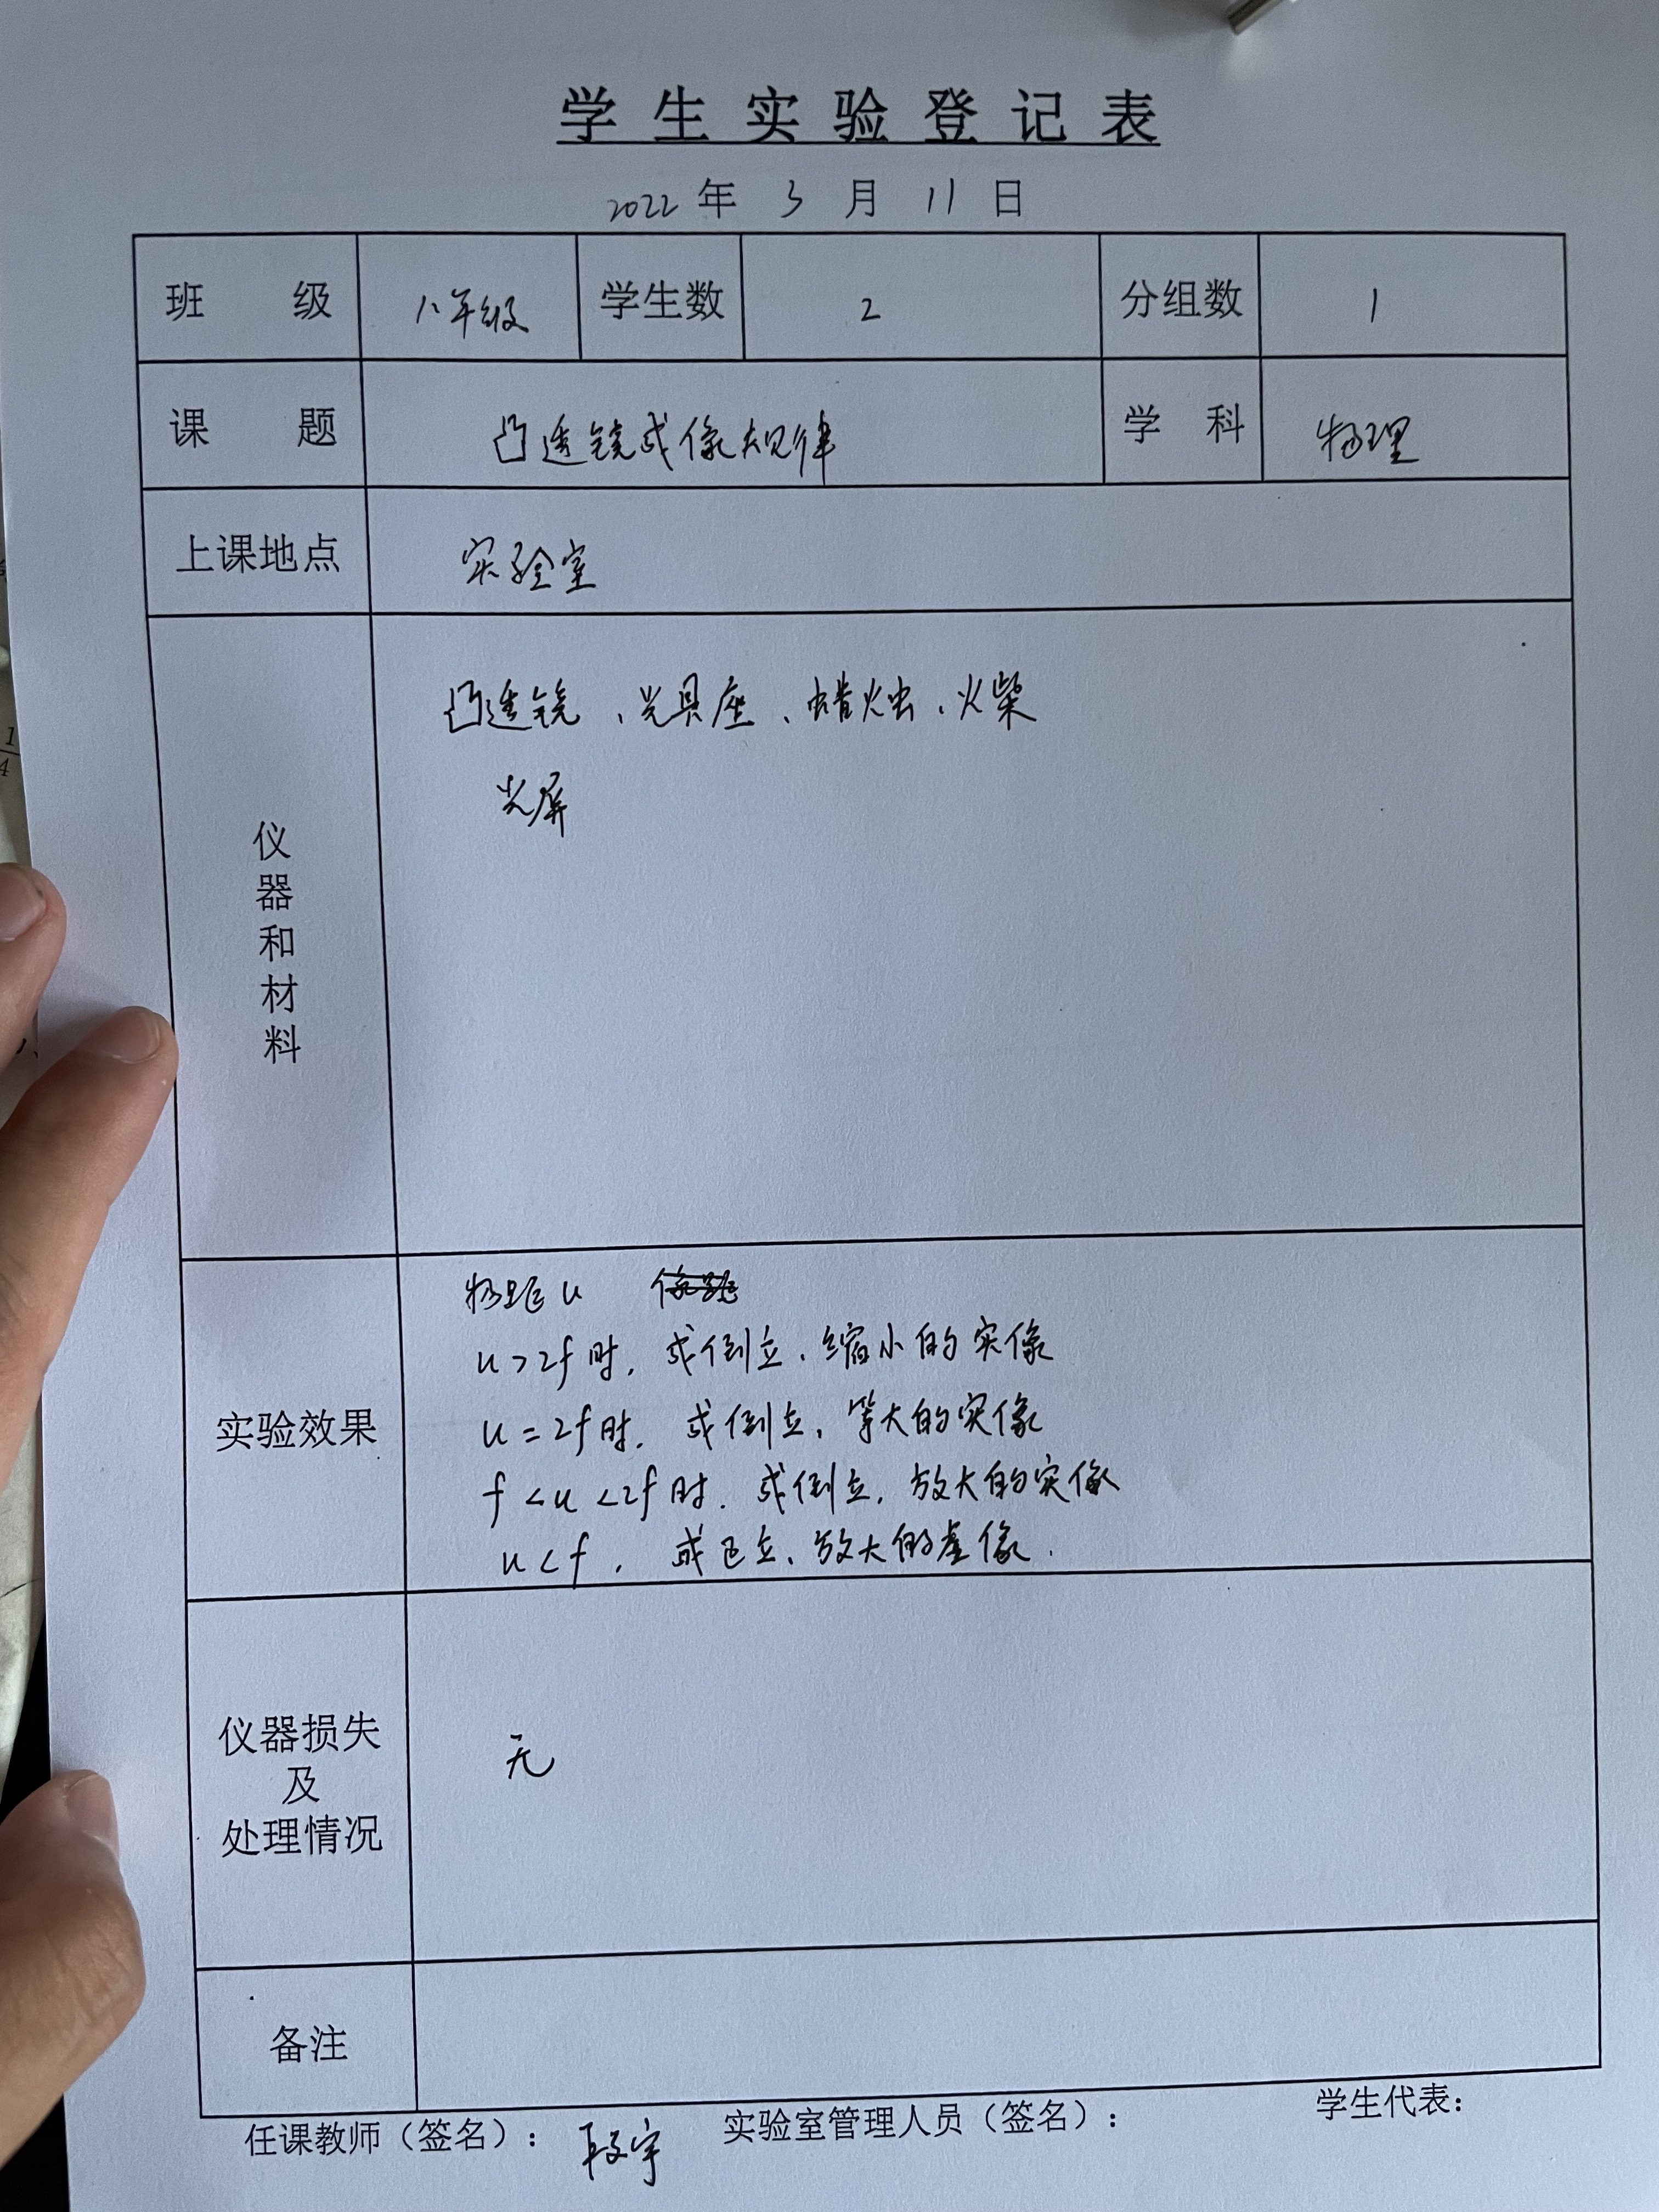 学生实验登记表
2022年 3 月 11 日
班 级 八年级 学生数 2 分组数 1
课 题 凸透镜成像规律 学 科 物理
上课地点 实验室
仪器和材料
凸透镜、光具座、蜡烛、火柴
光屏
实验效果
物距u 像距
u>2f时,成倒立、缩小的实像
u=2f时,成倒立、等大的实像
f<u<2f时,成倒立、放大的实像
u<f,成正立、放大的虚像.
仪器损失
及
处理情况
无
备注
任课教师(签名): 段宇 实验室管理人员(签名): 学生代表: